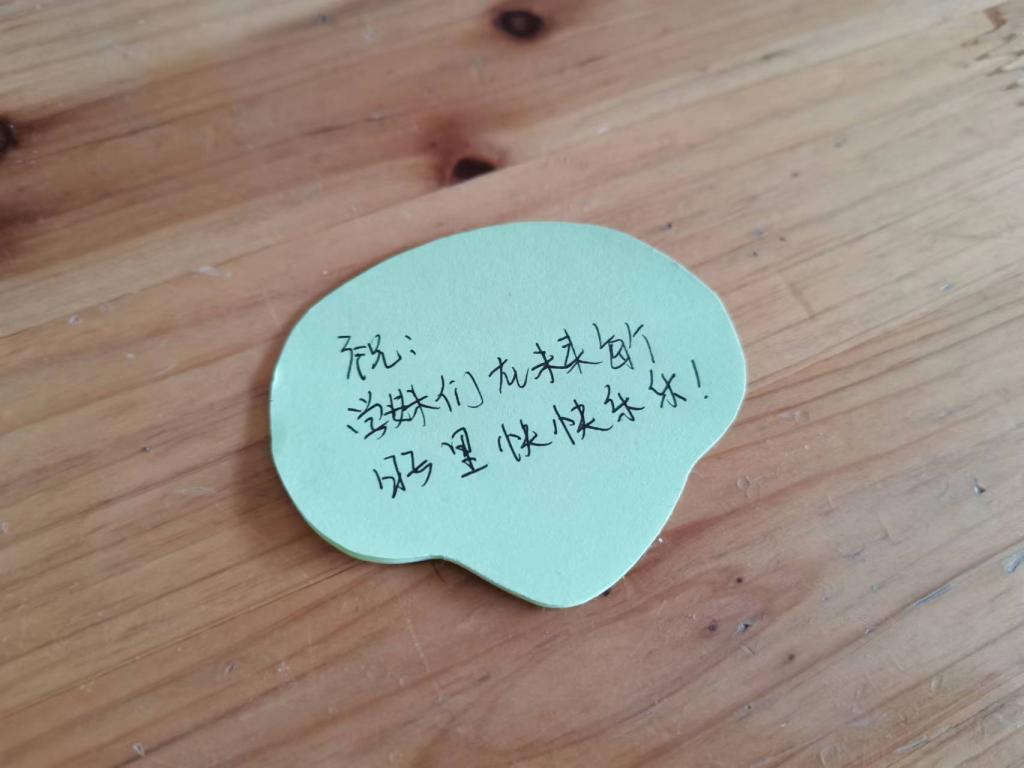 祝:
学妹们在未来的
日子里快快乐乐!